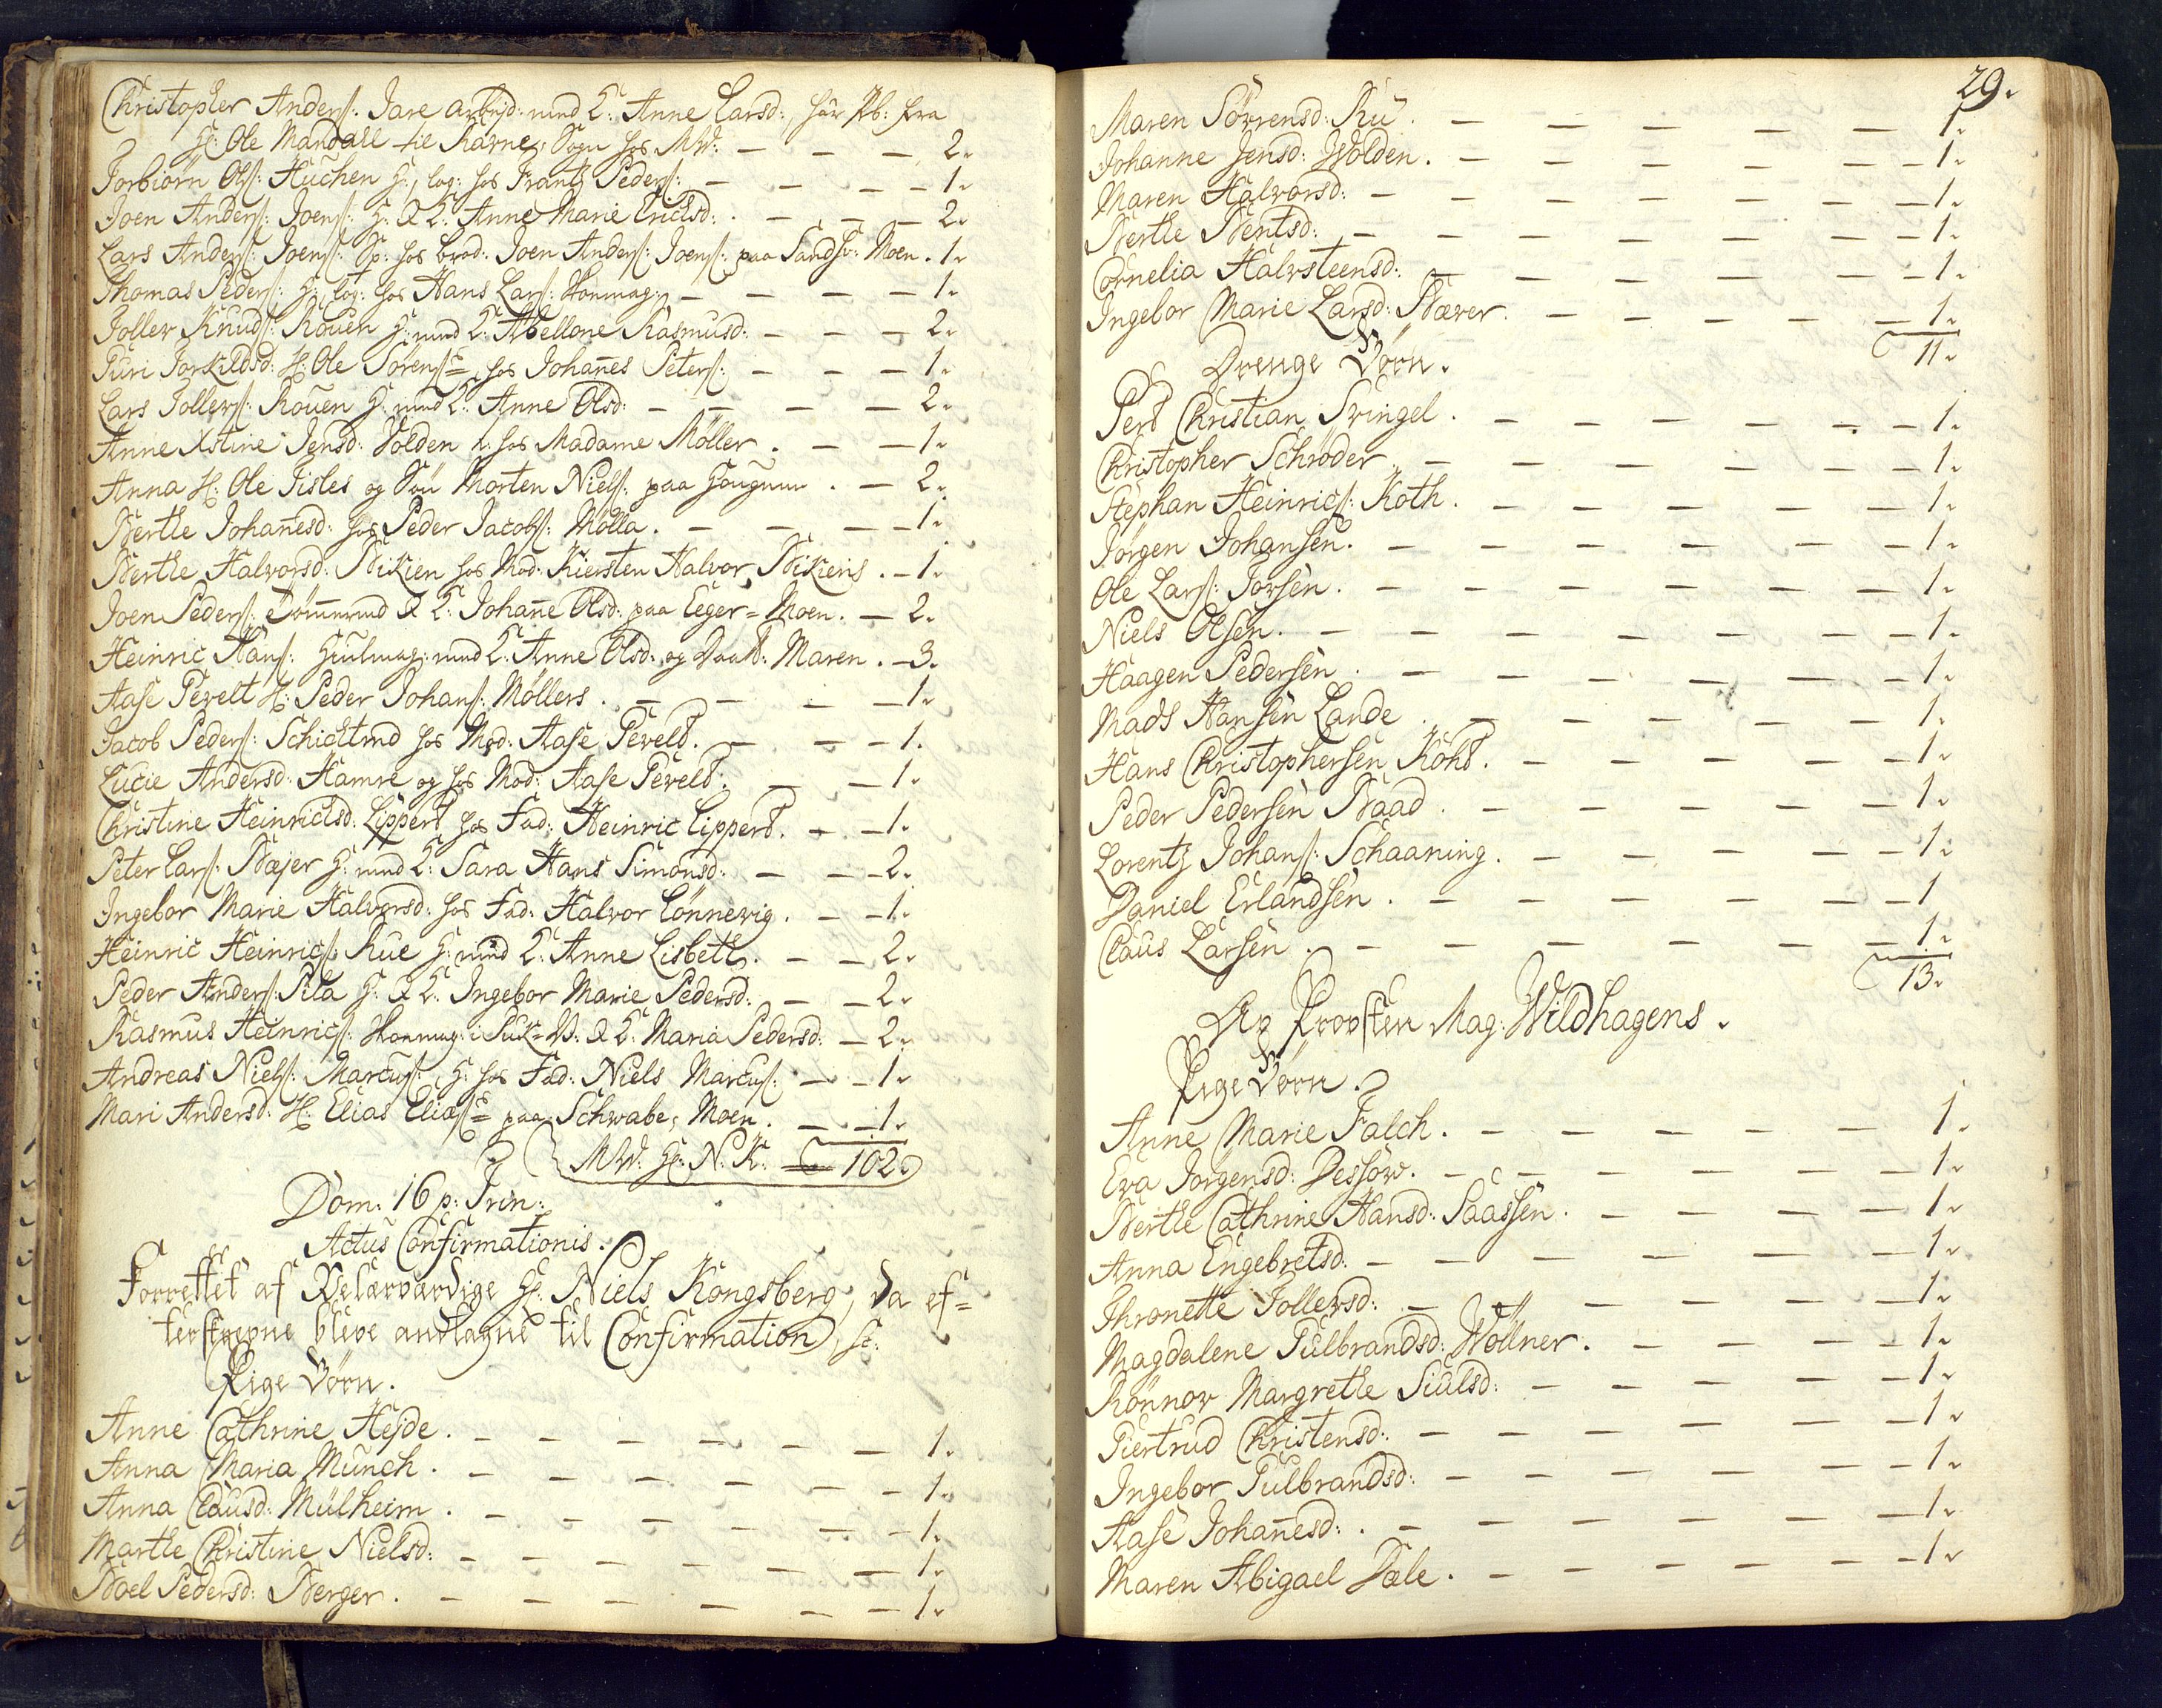 Christopher Anders: Jare arbejd: med K: Anne Larsd:, har Pb: fra
Hr: Ole Mandall til Ravne, Sogn hos MW: — — — 2.
Torbiörn Ols: Huchen G:, log: hos Frantz Peders: — — — 1.
Joen Anders: Joens: G: & K: Anne Marie Erichsd: . — — — 2.
Lars Anders: Joens: Sp: hos brod: Joen Anders: Joens: paa Sandsv: Moen. 1.
Thomas Peders: G:, log: hos Hans Lars: Skomag: — — — — 1.
Toller Knuds: Rouen G: med K: Abellone Rasmusd: — — — 2.
Guri Torkildsd: H: Ole Sörens= hos Johannes Peters: — — — 1.
Lars Tollers: Rouen G: med K: Anne Olsd: — — — — 2.
Anne Xstine Jensd: Volden hos Madame Möller . — — 1.
Anna H: Ole Tisles og Sön Morten Niels: paa . — 2.
Berthe Johannesd: hos Peder Jacobs: Mölla. — — — 1.
Berthe Halvorsd: Bikien hos Mod: Kiersten Halvor Bikiens . — 1.
Joen Peders: Tömmermd & K: Johanne Olsd: paa Eeger= Moen. — 2.
Heinric Hans: Hiulmag: med K: Anne Olsd: og Daatt: Maren . — 3.
Aase Pevelt H: Peder Johans: Möllers . — — — — 1.
Jacob Peders: Schichtmd hos Mod: Aase Pevelt. — — — 1.
Lucie Andersd: Hamre og hos Mod: Aase Pevelt. — — 1.
Christine Heinrichsd: Lippert hos Fad: Heinric Lippert. — — 1.
Peter Lars: Bæjer G: med K: Sara Hans Simonsd: — — 2.
Ingebor Marie Halvorsd: hos Fad: Halvor Lönnevig. — — 1.
Heinric Heinrics: Rue G: med K: Anne Lisbeth. — — 2.
Peder Anders: Pila G: & K: Ingebor Marie Pedersd: — — 2.
Rasmus Heinrics: Skomag: i & K: Maria Pedersd: — 2.
Andreas Niels: Marcus: G: hos Fad: Niels Marcus: — — 1.
Mari Andersd: H: Elias Elias= paa Schwabe, Moen. — — 1.
MW: Hr: N: K: — 102.
Dom: 16 p: Trin:
Actus Confirmationis.
Forrettet af Velærværdige Hr: Niels Kongsberg, da ef=
terskrevne bleve antagne til Confirmation, sc:
Pige Börn.
Anne Cathrine Hejde. — — — — — — 1.
Anna Maria Münch . — — — — — — 1.
Anna Clausd: Mülheim . — — — — — — 1.
Marthe Christine Nielsd: — — — — — — 1.
Boel Pedersd: Berger. — — — — — — 1.
29.
Maren Sörrensd: Ru . — — — — — — 1.
Johanne Jensd: Wolden. — — — — — — 1.
Maren Halvorsd: — — — — — — — 1.
Berthe Bentsd: — — — — — — — 1.
Cornelia Halvsteensd: — — — — — — 1.
Ingebor Marie Larsd: Bæver. — — — — — 1.
11.
Drenge Börn.
Pert Christian Svingel . — — — — — — 1.
Christopher Schröder . — — — — — — 1.
Stephan Heinrics: Koth . — — — — — — 1.
Jörgen Johansen. — — — — — — — 1.
Ole Lars: Torsen . — — — — — — — 1.
Niels Olsen. — — — — — — — 1.
Haagen Pedersen . — — — — — — 1.
Mads Hansen Lande . — — — — — — 1.
Hans Christophersen Koht. — — — — — 1.
Peder Pedersen Baad . — — — — — — 1.
Lorentz Johans: Schaaning. — — — — — 1.
Daniel Erlandsen . — — — — — — 1
Claus Larsen . — — — — — — — 1.
13.
Af Provsten Mag: Wildhagens.
Pige Börn.
Anne Marie Falch. — — — — — — 1.
Eva Jörgensd: Dessow. — — — — — — 1.
Berthe Cathrine Hansd: Saassen. — — — — 1.
Anna Engebretsd: — — — — — — — 1.
Thronette Tollersd: — — — — — — 1.
Magdalene Gulbrandsd: Wöllner . — — — — 1.
Rönnov Margrethe Siulsd: — — — — — 1.
Giertrud Christensd: — — — — — — 1.
Ingebor Gulbrandsd: — — — — — — 1.
Aase Johannesd: . — — — — — — 1.
Maren Abigael Dale . — — — — — — 1.